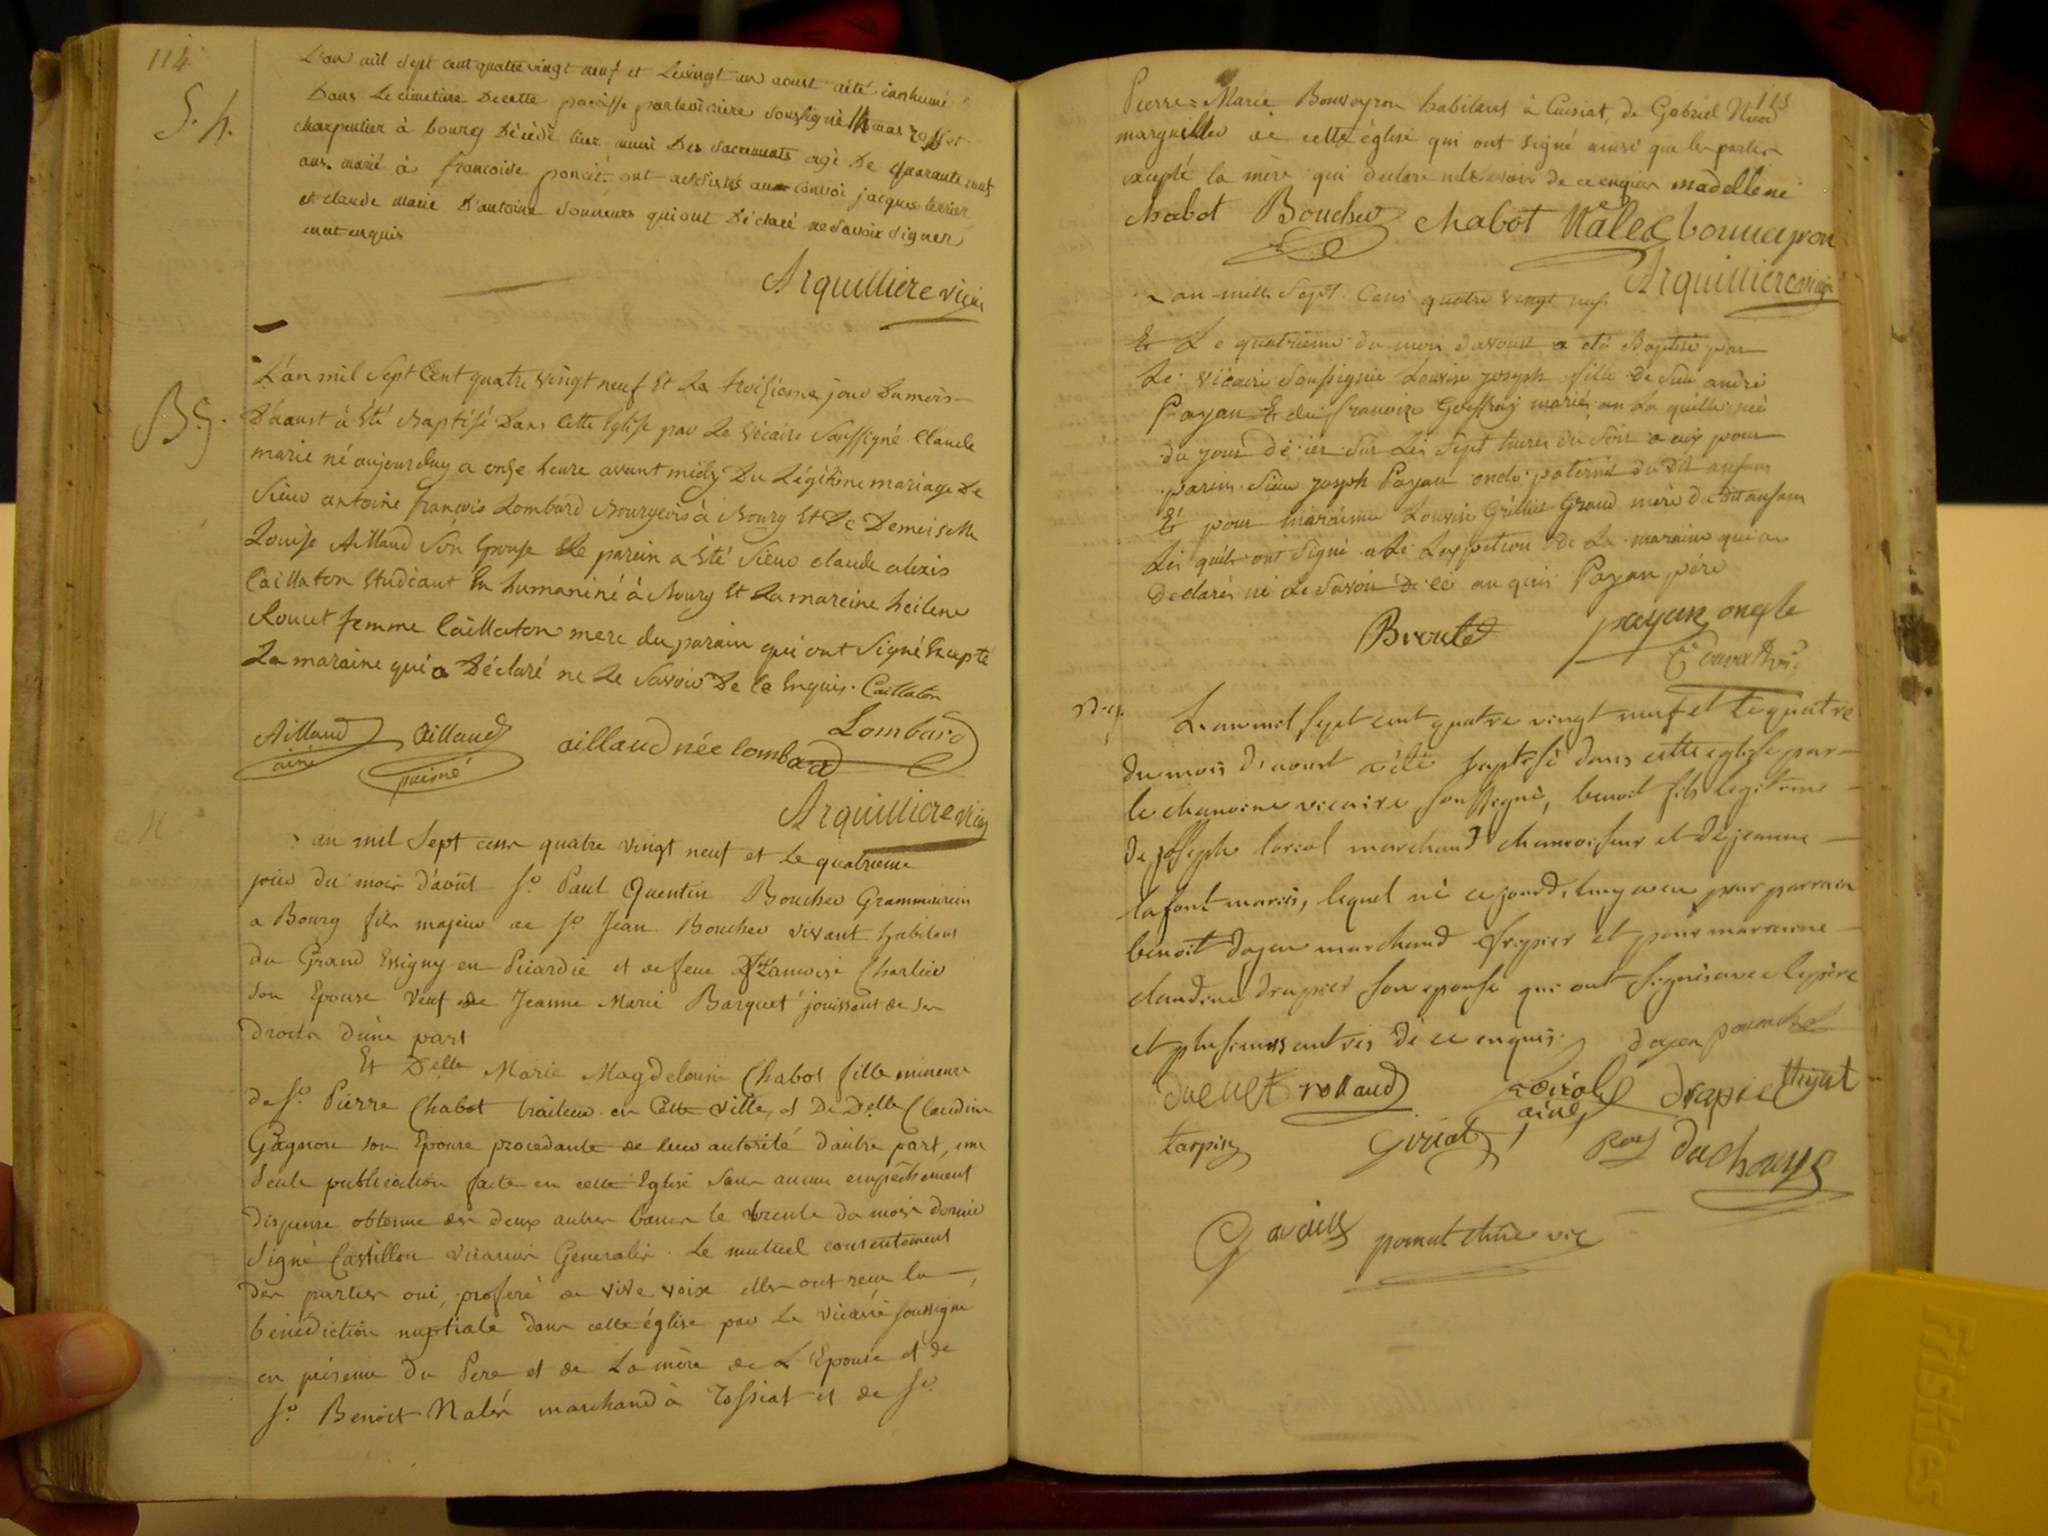 114
L'an mil sept cent quatre vingt neuf et le vingt un aoust a été inhumé
Dans le cimetiere de cette paroisse par le vicaire soussigné thomas rosset
charpentier à bourg décédé hier muni des sacrements agé de quarante neuf
ans. marié à francoise poncet. ont assistés au convoi jacques terrier
et claude marie D'antoine sonneurs qui ont déclaré ne savoir signer
enquis
S. h.
Arquilliere vicaire
B. g.
L'an mil Sept Cent quatre vingt neuf Et Le troisieme jour du mois
D'aoust à Eté Baptisé Dans Cette Eglise par Le Vicaire Soussigné Claude
marie né aujourduy a onze heure avant midy Du Légitime mariage De
Sieur antoine francois Lombard Bourgeois à Bourg Et De Demoiselle
Louise Aillaud Son Epouse Le parein a Eté Sieur claude alexis
Caillaton Etudiant En humaniné à Bourg Et La mareine heilene
femme Caillaton mere du parain qui ont Signé Excepté
La maraine qui a Déclaré ne Le Savoir De Ce Enquis. Caillaton
Aillaud ainé Aillaud puisné aillaud née lombard Lombard
Arquilliere vicaire
an mil Sept cens quatre vingt neuf et le quatrieme
jour du mois d'août Sr. Paul Quentin Boucher Grammairien
a Bourg fils majeur de Sr. Jean Boucher vivant habitant
du Grand Essigny en Picardie et de feue francoise Charlier
son Epouse Veuf de Jeanne Marie Barquet jouissant de ses
droits d'une part
Et Delle Marie Magdeleine Chabot fille mineure
de Sr. Pierre Chabot traiteur en Cette ville, et De Delle Claudine
Gagnon son Epouse procedante de leur autorité d'autre part, une
Seule publication faite en cette Eglise Sans aucun empêchement
dispense obtenue des deux autres bans le trente du mois dernier
Signé Castillon vicarius Generalis. Le mutuel consentement
des parties oui, proferé de vive voix elles ont recu la
bénédiction nuptiale dans cette église par le vicaire soussigné
en présence du Pere et de La mère de L'Epouse et de
Sr. Benoit Nalés marchand à Tossiat et de Sr.
115
Pierre-Marie Bonveyron habitant à Cuisiat, de Gabriel
marguillier de cette église qui ont signé ainsi que les parties
excepté la mère qui declare ne le savoir de ce enquise madelleine
chabot Boucher chabot Nalés bonveyron
Arquilliere vicaire
an mille Sept Cens quatre vingt neuf
Et Le quatrieme du mois d'aoust a eté Baptisé par
Le Vicaire Soussignée Louise joseph fille de Sieur andré
Payan Et de francoise Geoffray mariés an La quelle née
du jour d'ier Sur Les Sept hures du Soir a eux pour
parin Sieur joseph Payan oncle paternel du dit anfans
Et pour maraine Louise Grand mere du dit anfans
Les quels ont Signé a Le Lexsption de La maraine qui a
declarés ne Le Savoir de ce anquis Payan père
Broute payan oncle
B. g.
L'an mil sept cent quatre vingt neuf et le quatre
du mois d'aoust a été baptisé dans cette eglise par
le chanoine vicaire soussigné, benoit fils legitime
de joseph loriol marchand chamoiseur et de jeanne
lafont mariés, lequel né ce jourd'huy a eu pour parrain
benoit doyen marchand frippier et pour marraine
claudine drapier son epouse qui ont signés avec le père
et plusieurs autres de ce enquis. doyen
rolland Loriol ainé drapier
tarpin Goiriot duchamp